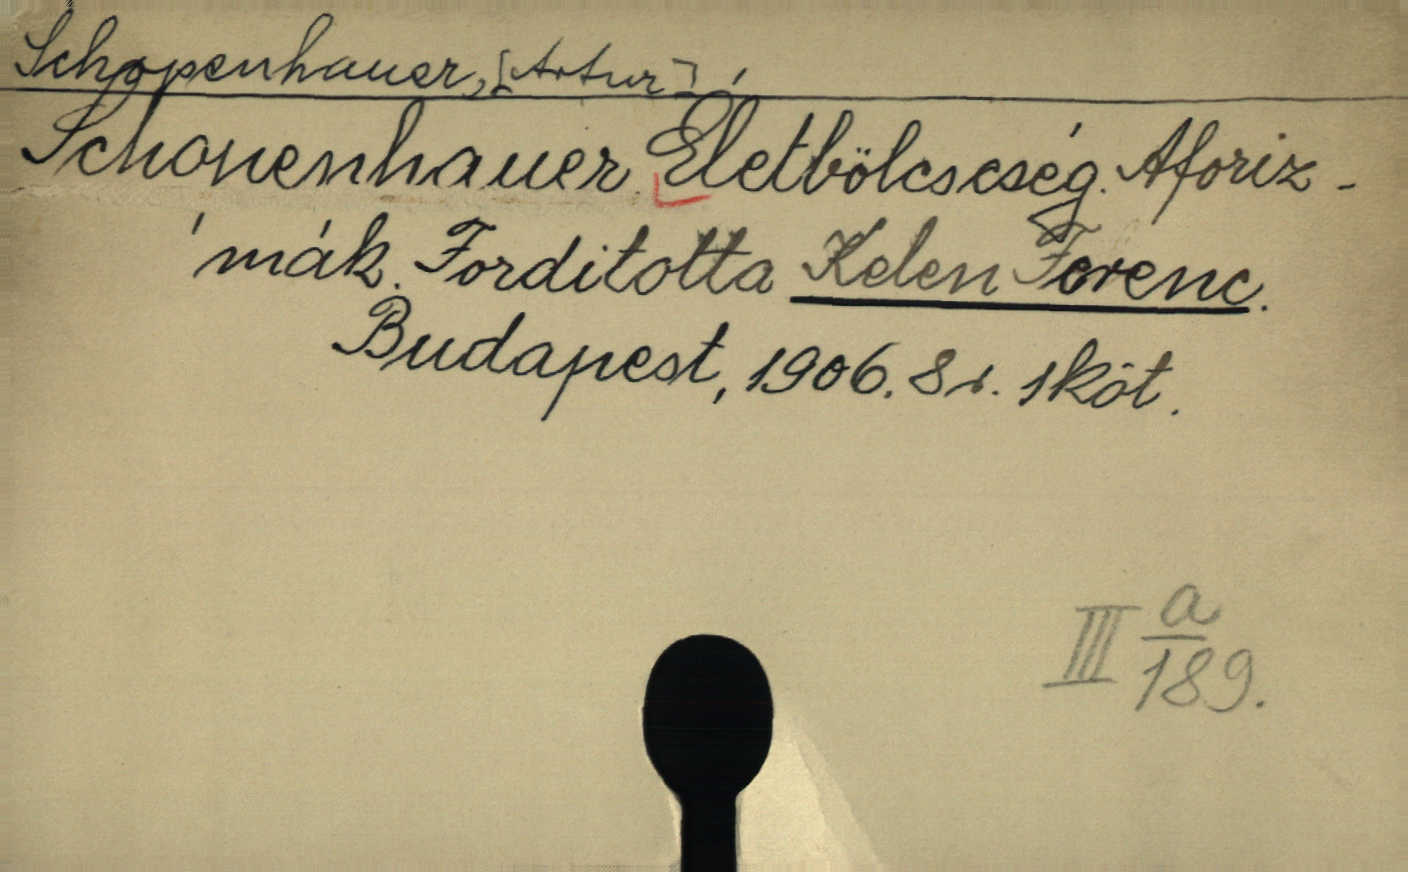 Schopenhauer, [Artur]
Schopenhauer Életbölcseség. Aforiz-
mák. Forditotta Kelen Ferenc.
Budapest, 1906. 8 r. 1 köt.
III a/189.